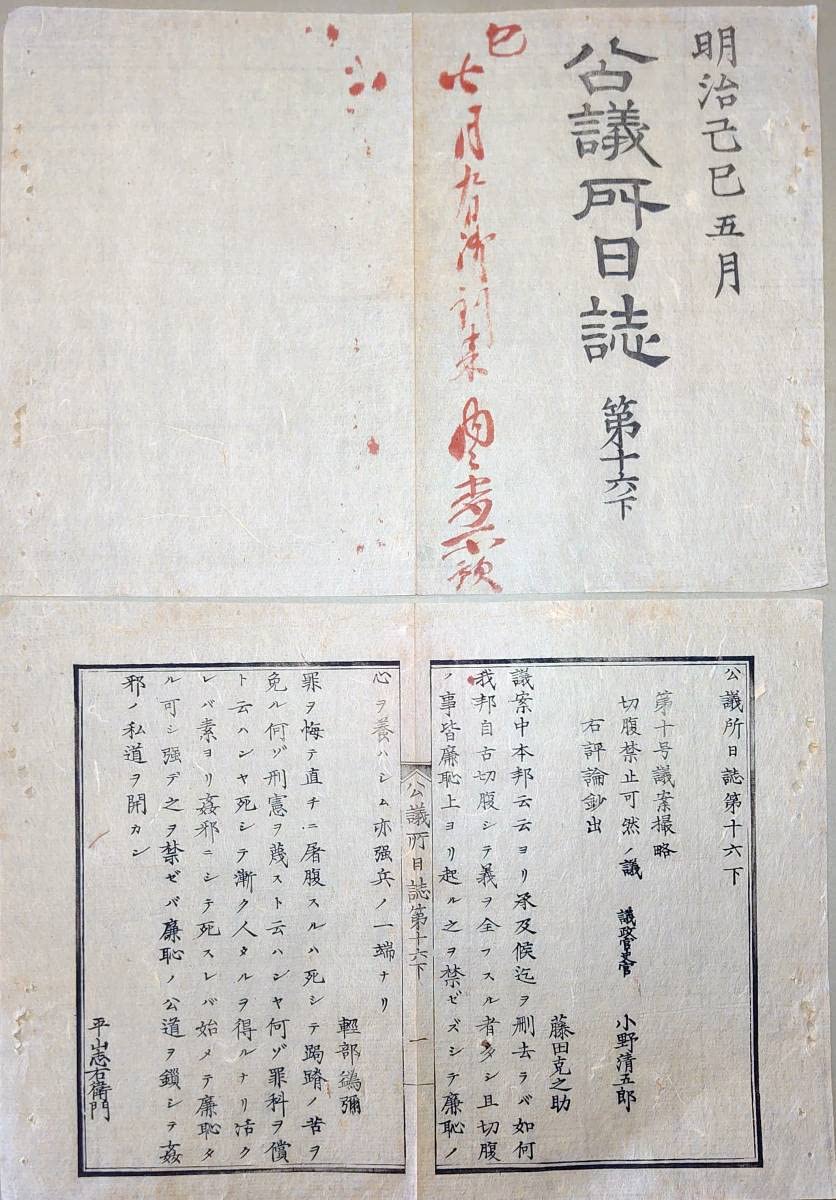 明治己巳五月
公議所日誌 第十六下
巳
七月
公議所日誌第十六下
第十号議案撮略
切腹禁止可然ノ議 議政官史官 小野清五郎
右評論鈔出
藤田克之助
議案中本邦云云ヨリ承及候迄ヲ刪去ラバ如何
我邦自古切腹シテ義ヲ全フスル者多シ且切腹
ノ事皆廉恥上ヨリ起ル之ヲ禁ゼズシテ廉恥ノ
公議所日誌第十六下 一
心ヲ養ハシム亦强兵ノ一端ナリ
輕部鍋彌
罪ヲ悔テ直チニ屠腹スルハ死シテ跼蹐ノ苦ヲ
免ル何ゾ刑憲ヲ蔑スト云ハンヤ何ゾ罪科ヲ償
ト云ハンヤ死シテ漸ク人タルヲ得ルナリ活ク
レバ素ヨリ姦邪ニシテ死スレバ始メテ廉恥タ
ル可シ强デ之ヲ禁ゼバ廉恥ノ公道ヲ鎖シテ姦
邪ノ私道ヲ開カン
平山志右衛門